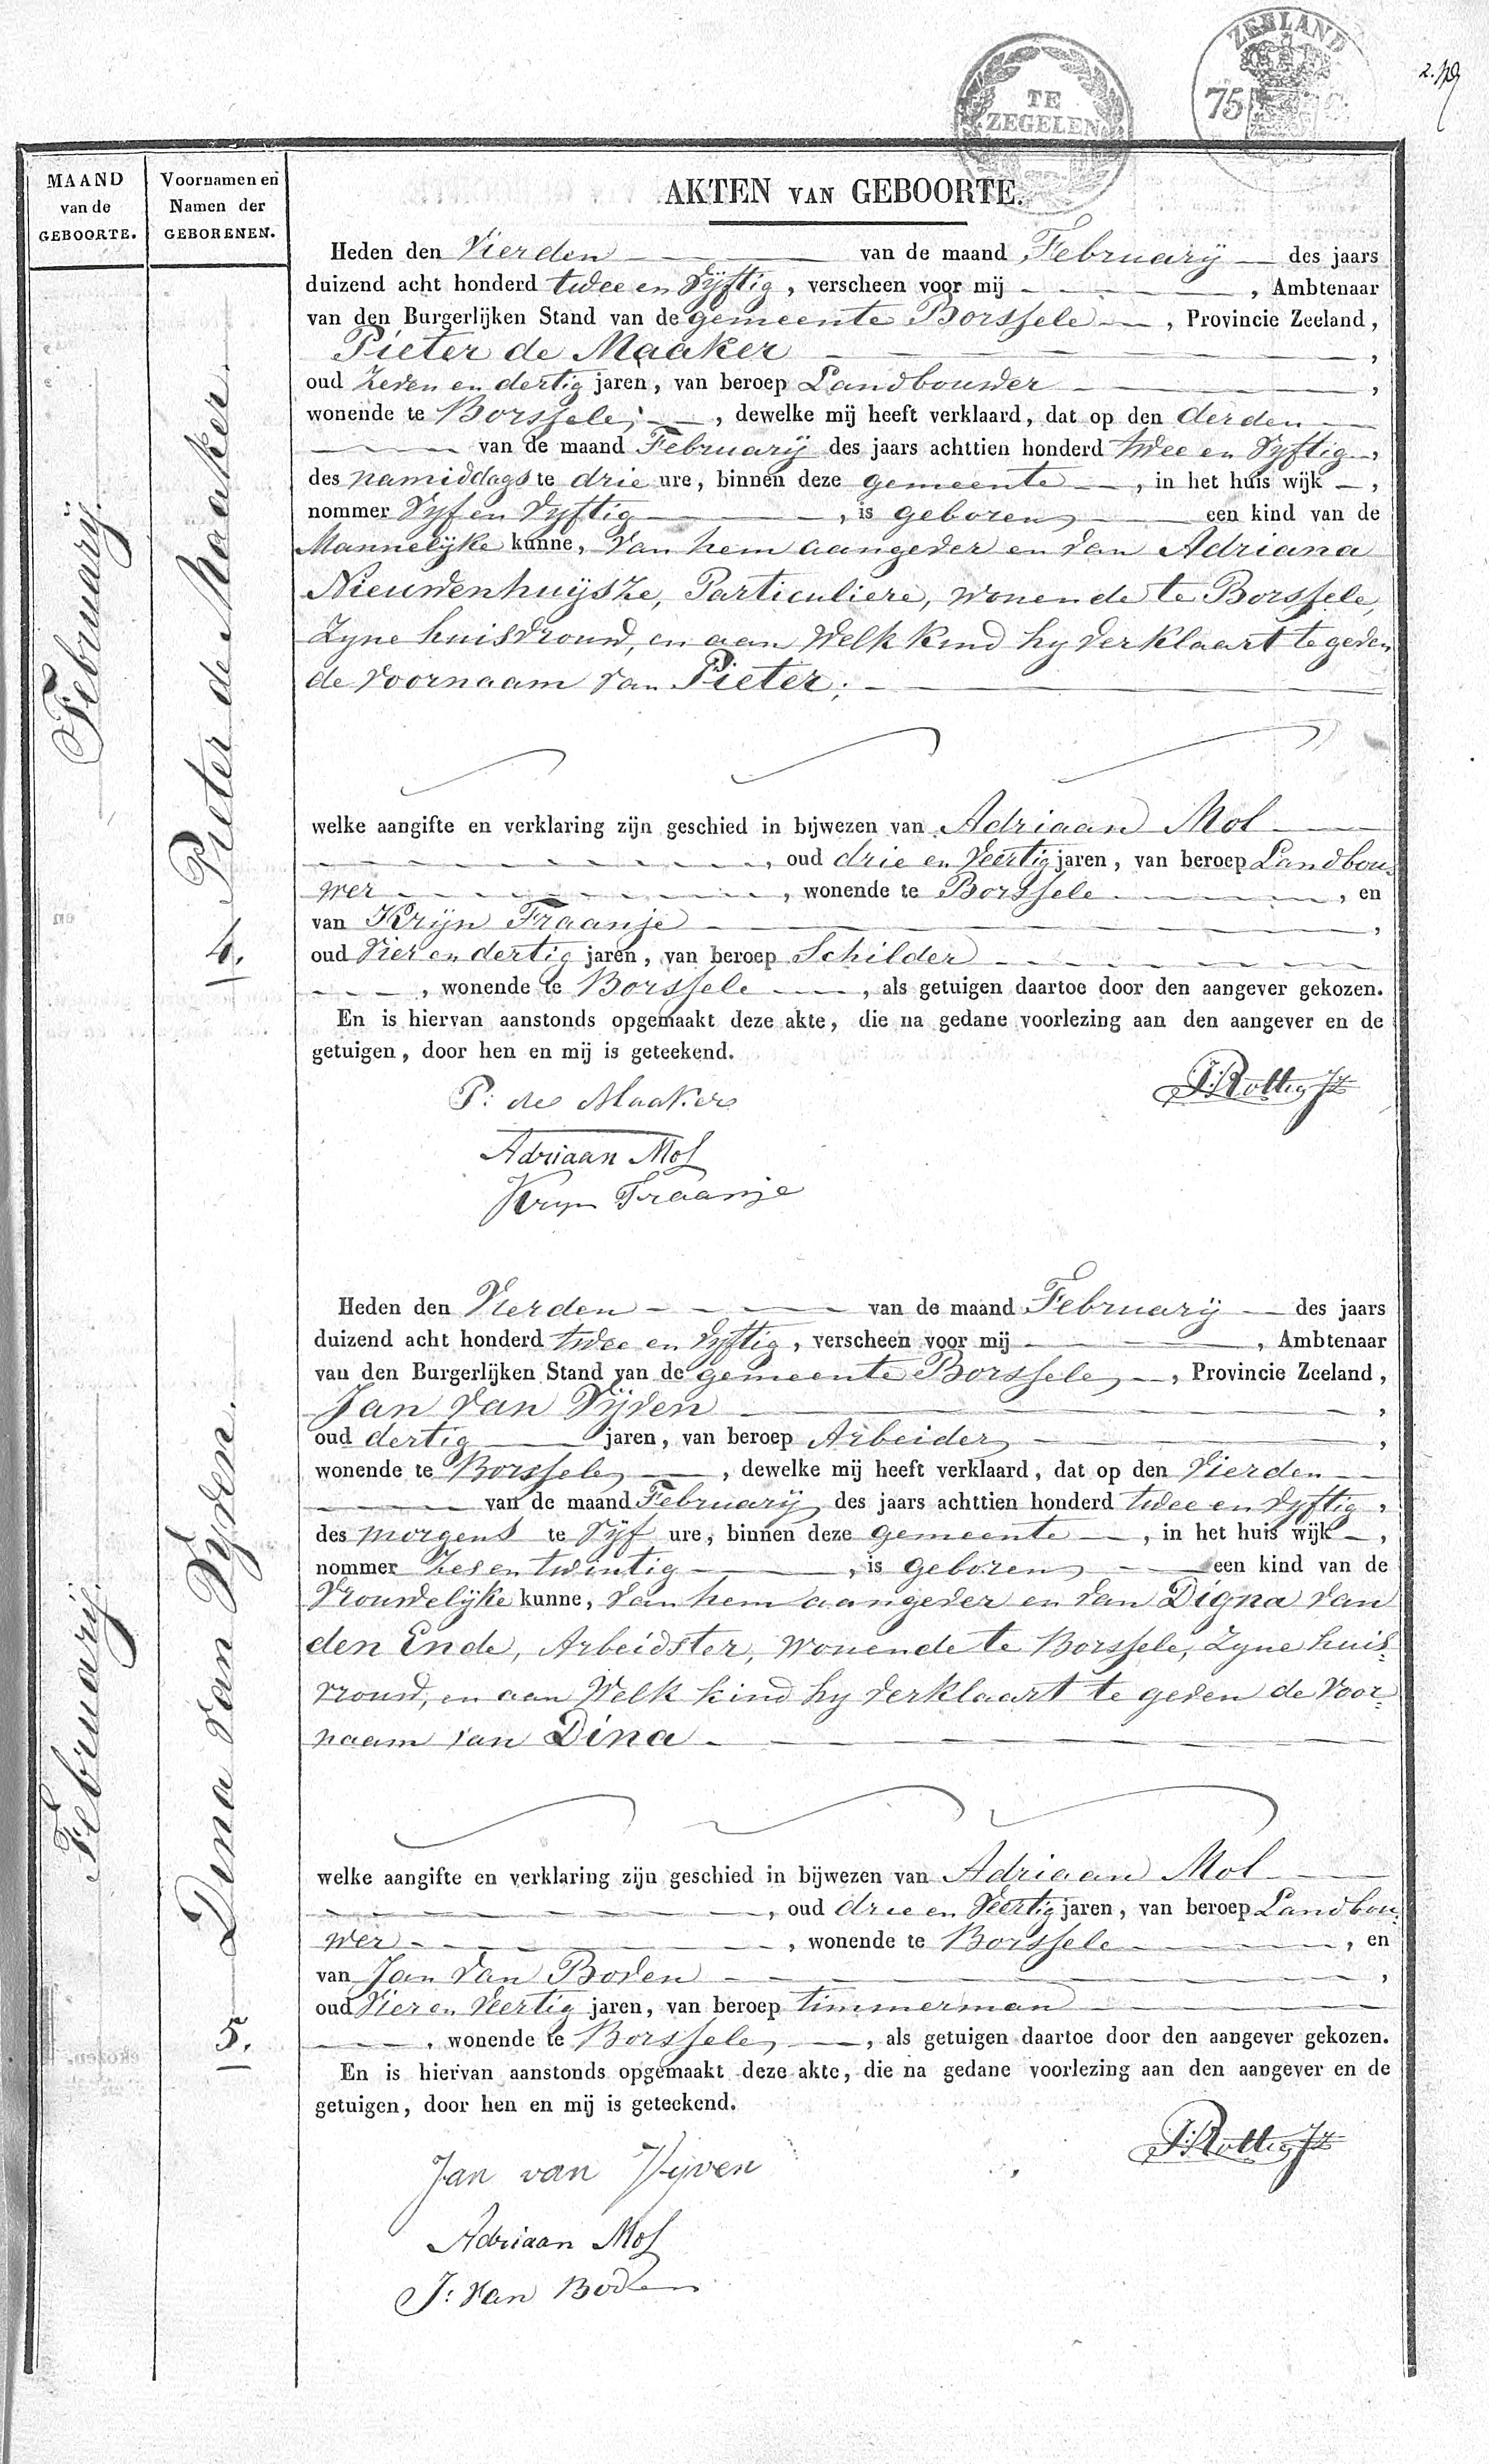 ZEELAND
TE
ZEGELEN
75
MAAND
van de
GEBOORTE.
Voornamen en
Namen der
GEBORENEN.
AKTEN VAN GEBOORTE.
Februarij.
Pieter de Maaker.
4.
Heden den Vierden van de maand Februarij des jaars
duizend acht honderd twee en Vijftig, verscheen voor mij , Ambtenaar
van den Burgerlijken Stand van de gemeente Borssele , Provincie Zeeland,
Pieter de Maaker ,
oud Zeven en dertig jaren, van beroep Landbouwer ,
wonende te Borssele, , dewelke mij heeft verklaard, dat op den derden
van de maand Februarij des jaars achttien honderd twee en Vyftig,
des namiddags te drie ure, binnen deze gemeente , in het huis wijk — ,
nommer Vyf en Vyftig , is geboren een kind van de
Mannelijke kunne, Van hem aangever en van Adriana
Nieuwenhuijsze, Particuliere, wonende te Borssele,
Zyne huisvrouw, en aan Welk Kind hy verklaart te geven
de Voornaam van Pieter.
welke aangifte en verklaring zijn geschied in bijwezen van Adriaan Mol
, oud drie en Veertig jaren, van beroep Landbou-
wer , wonende te Borssele , en
van Krijn Fraanje ,
oud Vier en dertig jaren, van beroep Schilder
, wonende te Borssele , als getuigen daartoe door den aangever gekozen.
En is hiervan aanstonds opgemaakt deze akte, die na gedane voorlezing aan den aangever en de
getuigen, door hen en mij is geteekend.
P: de Maaker
Adriaan Mol
Kryn Fraanje
Februarij.
Dina van Vyven.
5.
Heden den Vierden van de maand Februarij des jaars
duizend acht honderd twee en Vyftig, verscheen voor mij , Ambtenaar
van den Burgerlijken Stand van de gemeente Borssele , Provincie Zeeland,
Jan van Vijven ,
oud dertig jaren, van beroep Arbeider ,
wonende te Borssele , dewelke mij heeft verklaard, dat op den Vierden
van de maand Februarij des jaars achttien honderd twee en Vyftig,
des morgens te Vijf ure, binnen deze gemeente , in het huis wijk — ,
nommer Zes en twintig , is geboren een kind van de
Vrouwelijke kunne, Van hem aangever en van Digna van
den Ende, Arbeidster, wonende te Borssele, Zyne huis-
vrouw, en aan Welk kind hy verklaart te geven de Voor-
naam van Dina
welke aangifte en verklaring zijn geschied in bijwezen van Adriaan Mol
, oud drie en Veertig jaren, van beroep Landbou-
wer , wonende te Borssele , en
van Jan van Boven ,
oud Vier en Veertig jaren, van beroep timmerman
, wonende te Borssele , als getuigen daartoe door den aangever gekozen.
En is hiervan aanstonds opgemaakt deze akte, die na gedane voorlezing aan den aangever en de
getuigen, door hen en mij is geteekend.
Jan van Vijven
Adriaan Mol
J: van Boven